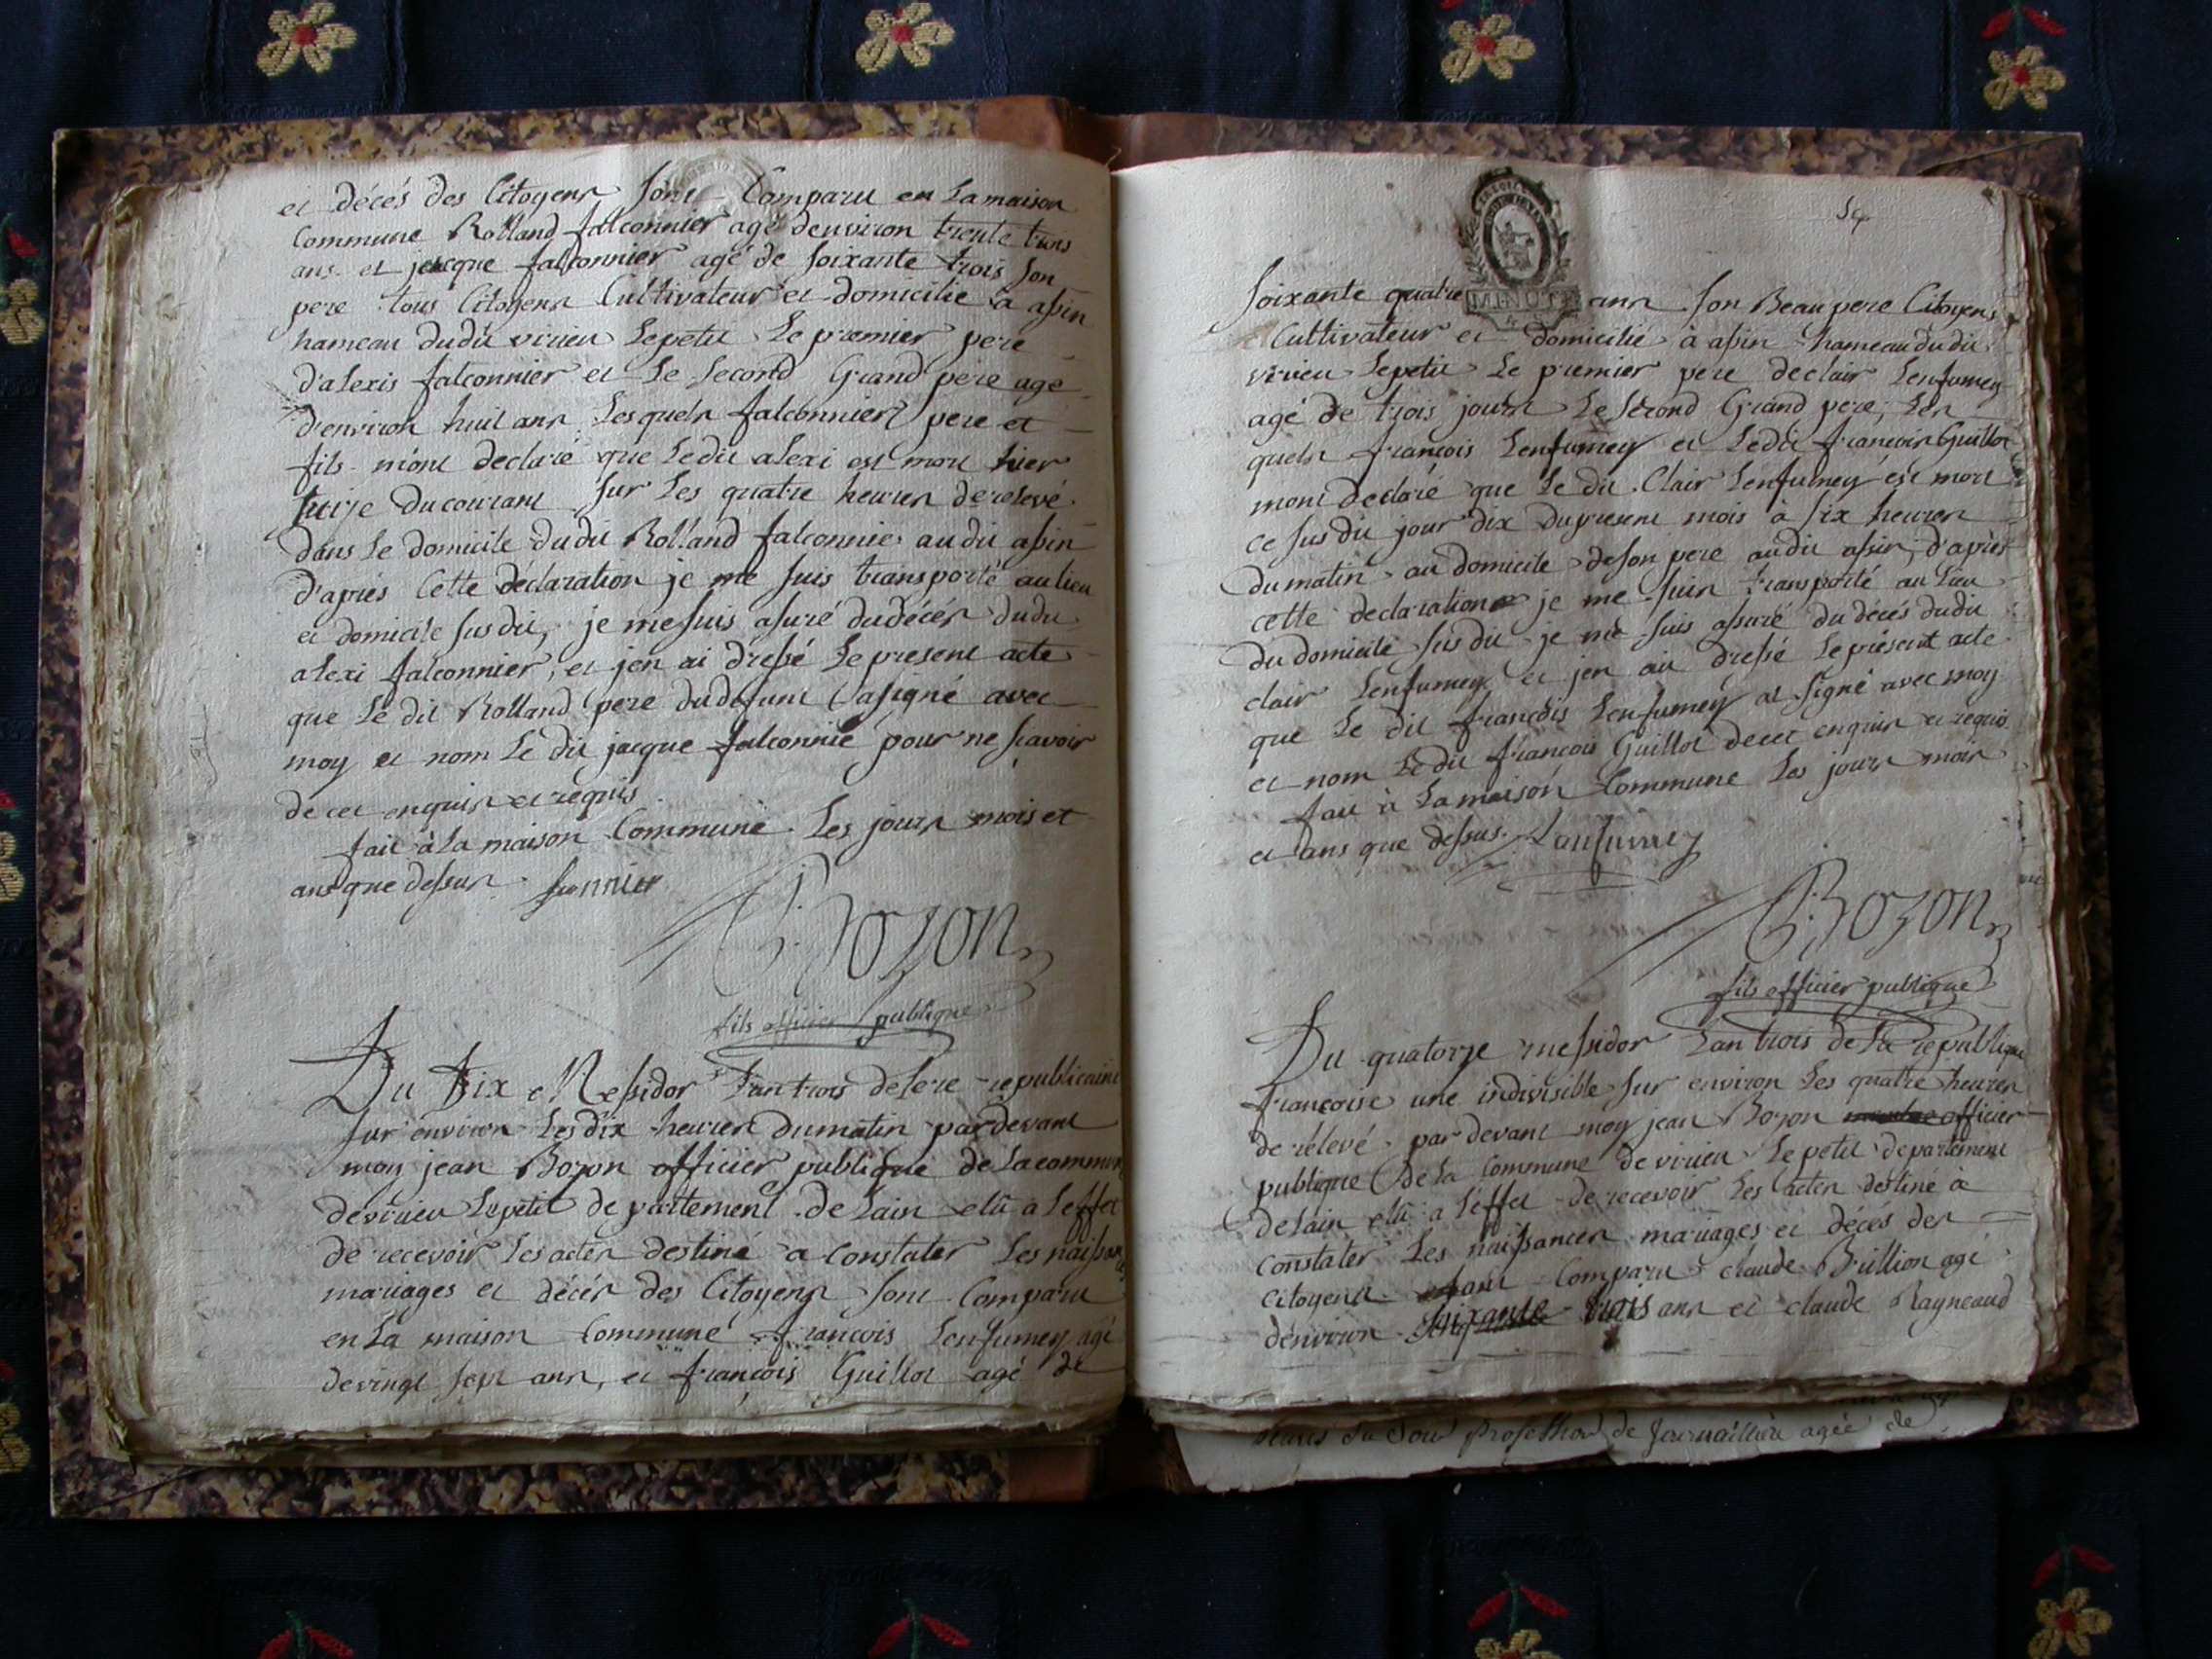 et décés des Citoyens sont Comparu en la maison
Commune Rolland falconnier agé denviron trente trois
ans et jacque falconnier agé de soixante trois son
pere tous Citoyens Cultivateur et domicilié a assin
hameau dudit virieu Lepetit Le premier pere
d'alexis falconnier et Le second Grand pere agé
denviron huit ans Lesquels falconnier pere et
fils mont declaré que Ledit alexi est mort hier
Ducourant sur Les quatre heures derelevé
dans Le domicile dudit Rolland falconnier audit assin
d'aprés Cette déclaration je me suis transporté aulieu
et domicile susdit, je mesuis asuré dudécés dudit
alexi falconnier, et jen ai dressé Lepresent acte
que Le dit Rolland pere dudefunt asigné avec
moy et nom Le dit jacque falconnié pour ne sçavoir
decet enquis et requis
fait à La maison Commune Les jours mois et
ans que dessus
Bozon
fils officier publique
Du Dix Messidor Lan trois delere republicaine
sur environ Lesdix heures dumatin pardevant
moy jean Bozon officier publique de Lacommune
devirieu Lepetit departement de Lain elû a Leffet
de recevoir Les actes destiné a Constater Les naissances
mariages et décés des Citoyens sont Comparu
en La maison Commune francois Lenfumey agé
devingt sept ans, et françois Guillot agé de
soixante quatre ans son Beau pere Citoyens
MINUTE
Cultivateur et domicilié à assin hameau dudit
virieu Lepetit Le premier pere declair Lenfumey
agé de trois jours Le sécond Grand pere, Les
quels francois Lenfumey et Ledit francois Guillot
mont Declaré que Le dit Clair Lenfumey est mort
ce susdit jour dix dupresent mois à six heures
dumatin au domicile deson pere audit assin, d'aprés
cette declaration je me suis transporté au Lieu
du domicile susdit je me suis assuré du décés dudit
clair Lenfumey et jen ait dressé Leprésent acte
que Le dit francois Lenfumey at signé avec moy
et nom Ledit francois Guillot decet enquis et requis
fait à La maison Commune Les jours mois
et ans que dessus. Lenfumey
Bozon
fils officier publique
Du quatorze messidor Lan trois de La republique
françoise une indivisible sur environ Les quatre heures
de rélevé par devant moy jean Bozon officier
publique De La Commune de virieu Lepetit departement
deLain elû a L'effet de recevoir Les actes destiné à
constater Les naissances mariages et décés des
Citoyens Comparu claude Brillion agé
denviron soixante trois ans et claude Raynaud